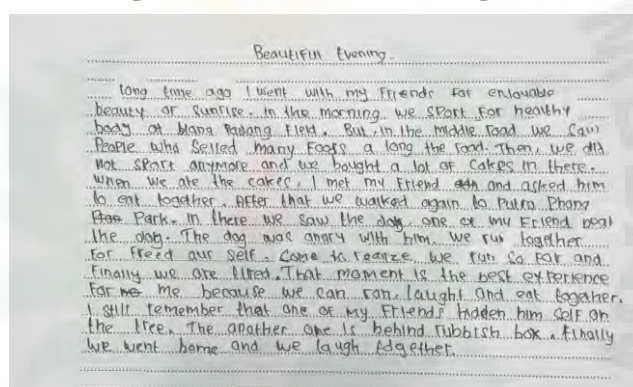 Beautifull Evening.
Long time ago I went with my Friends for enjouable
beauty of Sunrise. In the morning we sport for healthy
body at blang Padang Field. But, in the middle road we saw
People who selled many Foods a long the road. Then, we did
not sport anymore and we bought a lot of cakes in there.
When we ate the cakes, I met my Friend and asked him
to eat together. After that we walked again to Putra Phang
Park. in there we saw the dog, one of my Friend beat
the dog. The dog was angry with him. We run together
for freed our self. Come to realize we run so far and
finally we are tired. That moment is the best experience
for me because we can ran, laught and eat together.
I still remember that one of my Friends hidden him self on
the tree. The another one is behind rubbish box. Finally
we went home and we laugh together.